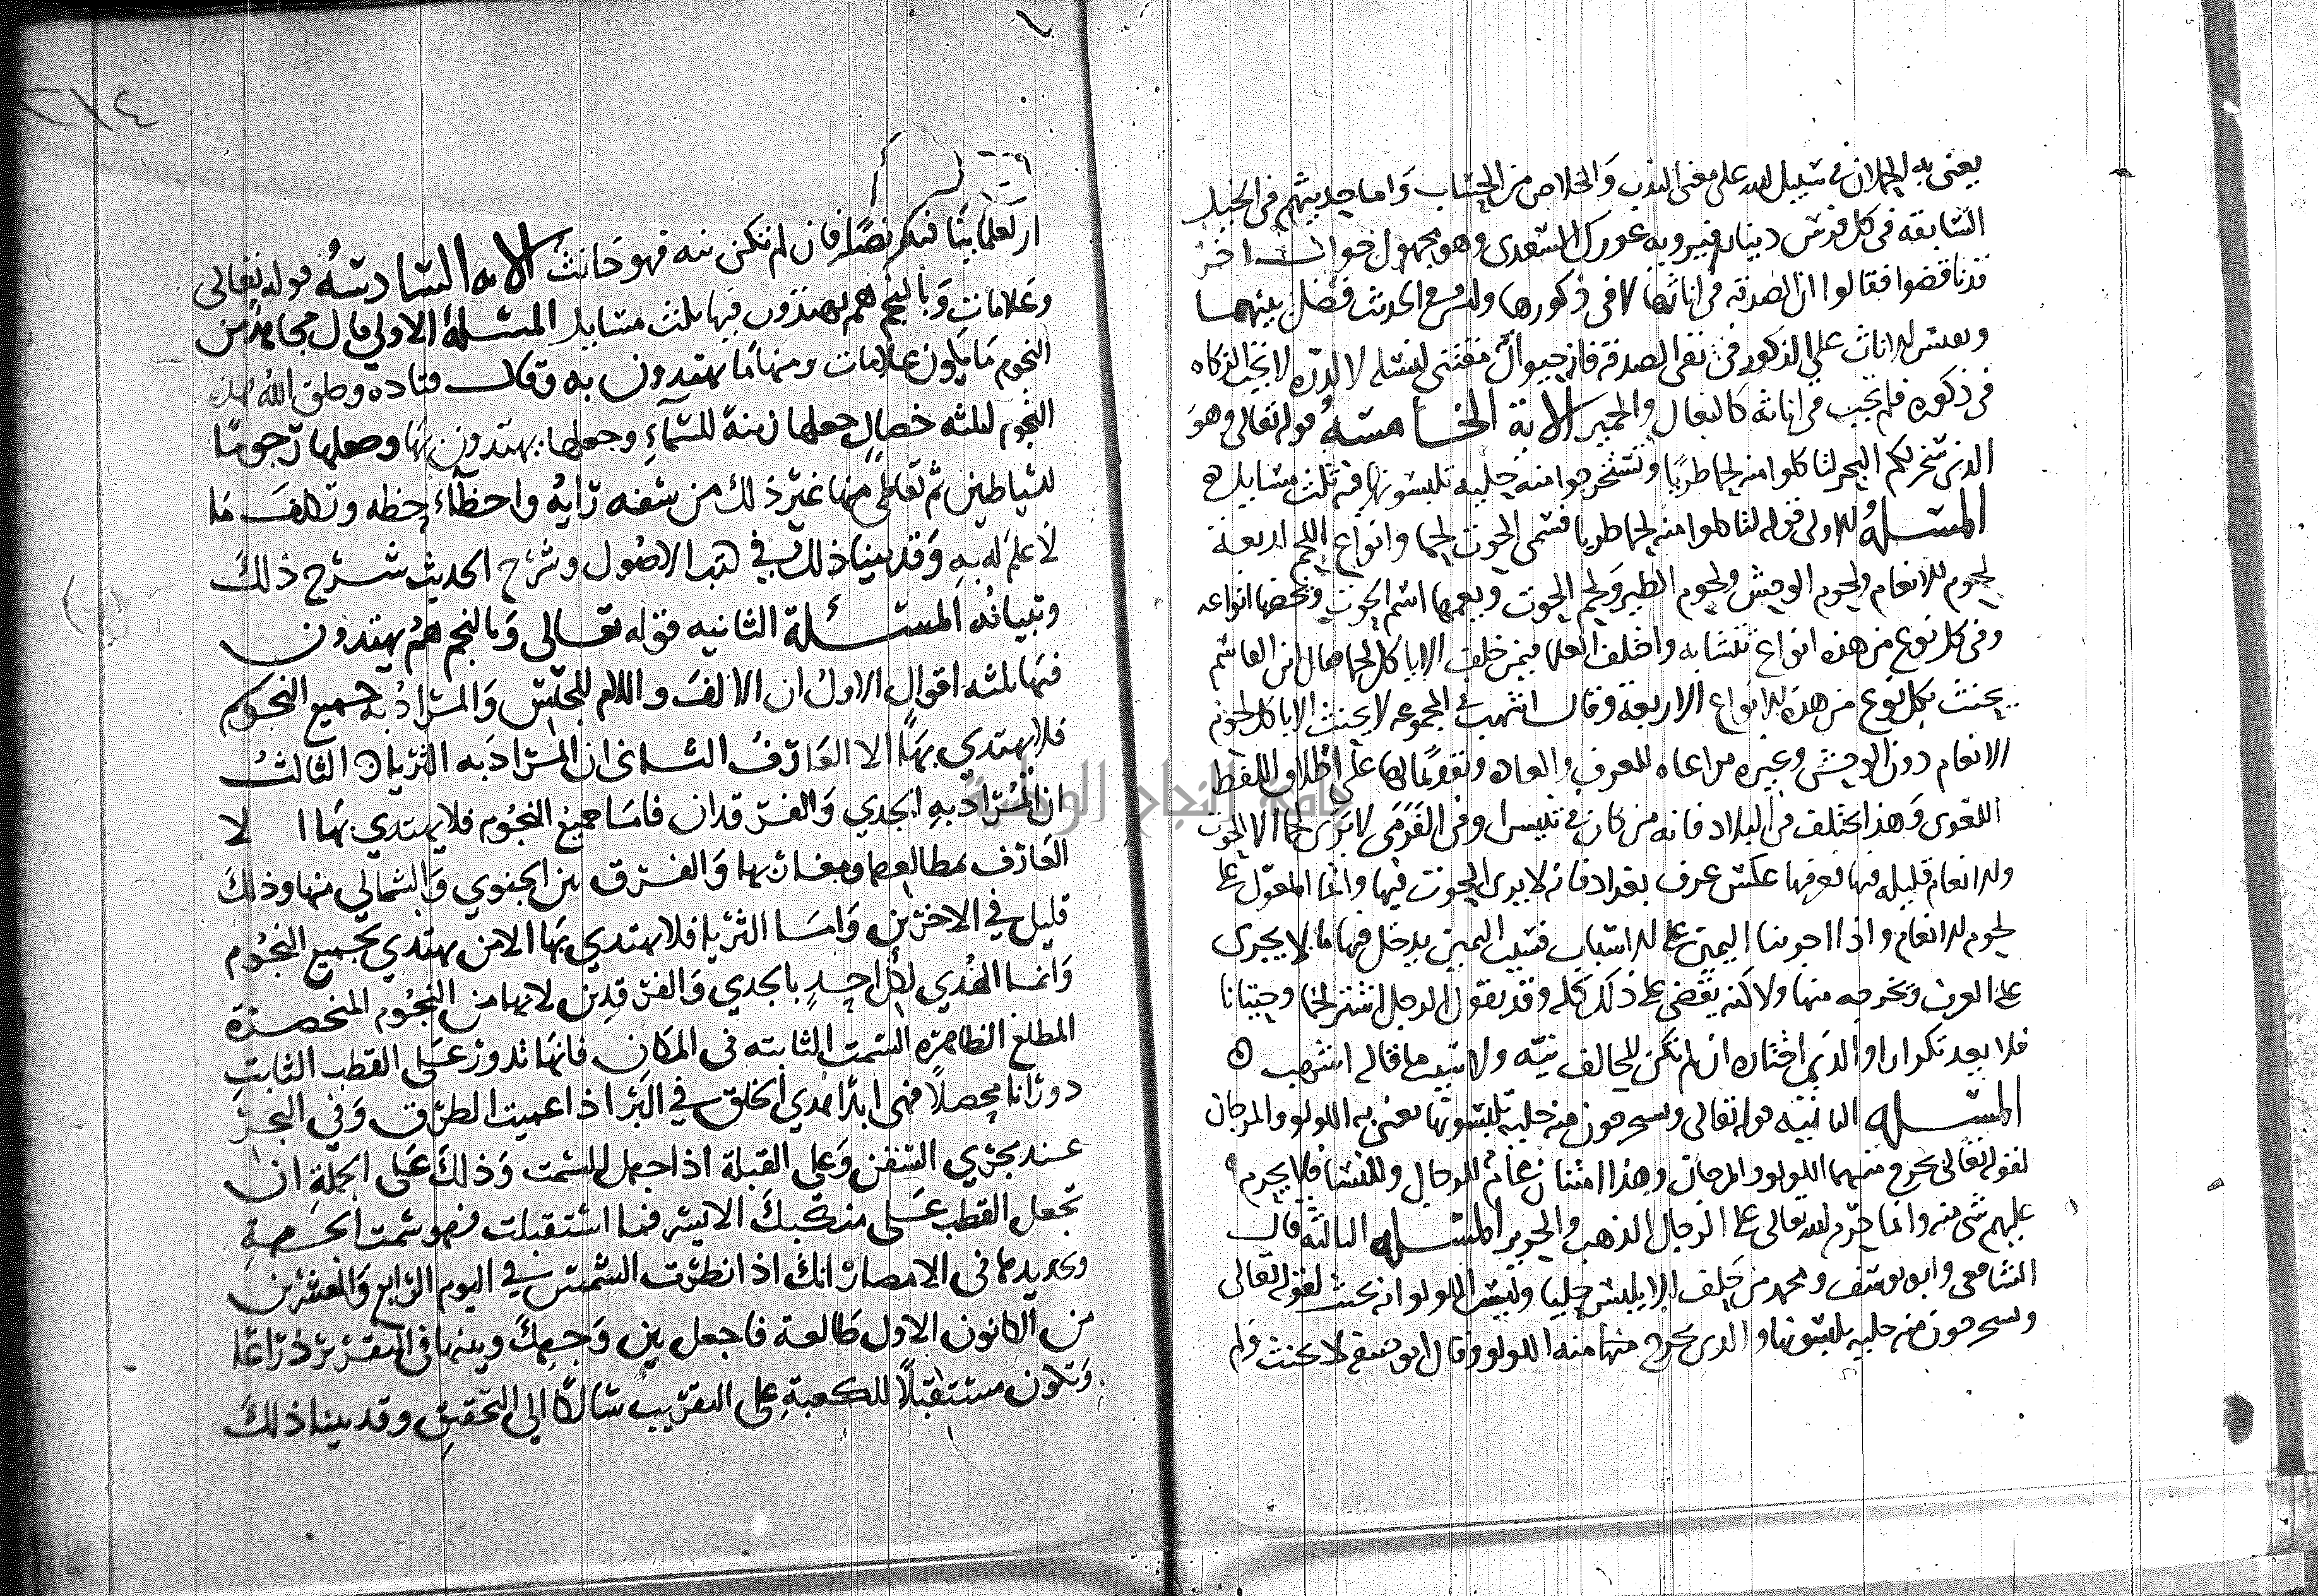 يعنى به الحملان فى سبيل الله على معنى الندب والخلاص من الحساب واما حديثهم فى الخيل
السابقة فى كل فرس دينار فيرويه غورك السعدى وهو مجهول جواب اخر
قد ناقضوا فقالوا ان الصدقه فى اناثها لا فى ذكورها وليس فى الحديث فصل بينهما
ونقيس الاناث على الذكور فى نفى الصدقة فانه حيوان مقتنى لنسله لا لدره لا تجب الزكاه
فى ذكوره فلم تجب فى اناثه كالبغال والحمير الاية الخامسة قوله تعالى وهو
الذى سخر لكم البحر لتاكلوا منه لحما طريا وتستخرجوا منه حلية تلبسونها فيه ثلث مسايل ه
المسئلة الاولى قوله لتاكلوا منه لحما طريا فسمى الحوت لحما وانواع اللحم اربعة
لحوم الانعام ولحوم الوحش ولحوم الطير ولحم الحوت ويعمها اسم الحوت ويخصها انواعه
وفى كل نوع من هذه انواع تتشابه واختلف العلما فيمن حلف الا ياكل لحما فقال ابن القاسم
يحنث بكل نوع من هذه الانواع الاربعة وقال اشهب فى المجموعه لا يحنث الا باكل لحوم
الانعام دون الوحش وغيره مراعاه للعرف والعاده وتقديما لها على اطلاق اللفظ
اللغوى وهذا يختلف فى البلاد فانه من كان فى تنيس او فى الفرمى لا يرى لحما الا الحوت
والانعام قليله فيها فعرفها عكس عرف بغداد فانه لا يرى الحوت فيها وانما المعول على
لحوم الانعام واذا اجرينا اليمين على الاسباب فسبب اليمين يدخل فيها ما لا يجرى
على العرف ويخرجه منها ولاكنه يقضى على ذلك كله وقد يقول الرجل اشتر لحما وحيتانا
فلا يعد تكرارا والذى اختاره ان لم تكن للحالف نية ولا سبب ما قاله اشهب ه
المسئله الثانية قوله تعالى وتستخرجون منه حلية تلبسونها يعنى به اللولو والمرجان
لقوله تعالى يخرج منهما اللولو والمرجان وهذا امتنان عام للرجال والنسا فلا يحرم
عليهم شى منه وانما حرم الله تعالى على الرجال الذهب والحرير المسئله الثالثه قال
الشافعى وابو يوسف ومحمد من حلف الا يلبس حليا ولبس اللولو انه يحنث لقوله تعالى
وتستخرجون منه حليه تلبسونها والذى يخرج منها منه اللولو وقال ابو حنيفه لا يحنث ولم
ار لعلمائنا فيها نصا فان لم تكن نيه فهو حانث الايه السادسة قوله تعالى
وعلامات وبالنجم هم يهتدون فيها ثلث مسايل المسئلة الاولى قال مجاهد من
النجوم ما يكون علامات ومنها ما يهتدون به وقال قتاده وخلق الله هذه
النجوم لثلثه خصال جعلها زينة للسماء وجعلها يهتدون بها وجعلها رجوما
للشياطين ثم تعاطى منها غير ذلك من سفه رايه واخطاء حظه وتكلف ما
لا علم له به وقد بينا ذلك في كتب الاصول وشرح الحديث شرح ذلك
وتبيانه المسئلة الثانيه قوله تعالى وبالنجم هم يهتدون
فيها ثلثه اقوال الاول ان الالف واللام للجنس والمراد به جميع النجوم
فلا يهتدي بها الا العارف الثانى ان المراد به الثريا ه الثالث
ان المراد به الجدي والفرقدان فاما جميع النجوم فلا يهتدي بها ا لا
العارف بمطالعها ومغاربها والفرق بين الجنوي والشمالي منها وذلك
قليل في الاخرين واما الثريا فلا يهتدي بها الا من يهتدي بجميع النجوم
وانما الهدي لكل احد بالجدي والفرقدين لانها من النجوم المنحصرة
المطلع الظاهره السمت الثابته فى المكان فانها تدور على القطب الثابت
دورانا محصلا فهى ابدا هدي الخلق في البر اذا عميت الطرق وفي البحر
عند مجري السفن وعلى القبلة اذا جهل السمت وذلك على الجملة ان
تجعل القطب على منكبك الايسر فما استقبلت فهو سمت الجهة
وتحديدها فى الامصار انك اذا نظرت الشمس في اليوم الرابع والعشرين
من الكانون الاول طالعة فاجعل بين وجهك وبينها فى التقدير ذراعا
وتكون مستقبلا للكعبة على التقريب سالكا الي التحقيق وقد بينا ذلك